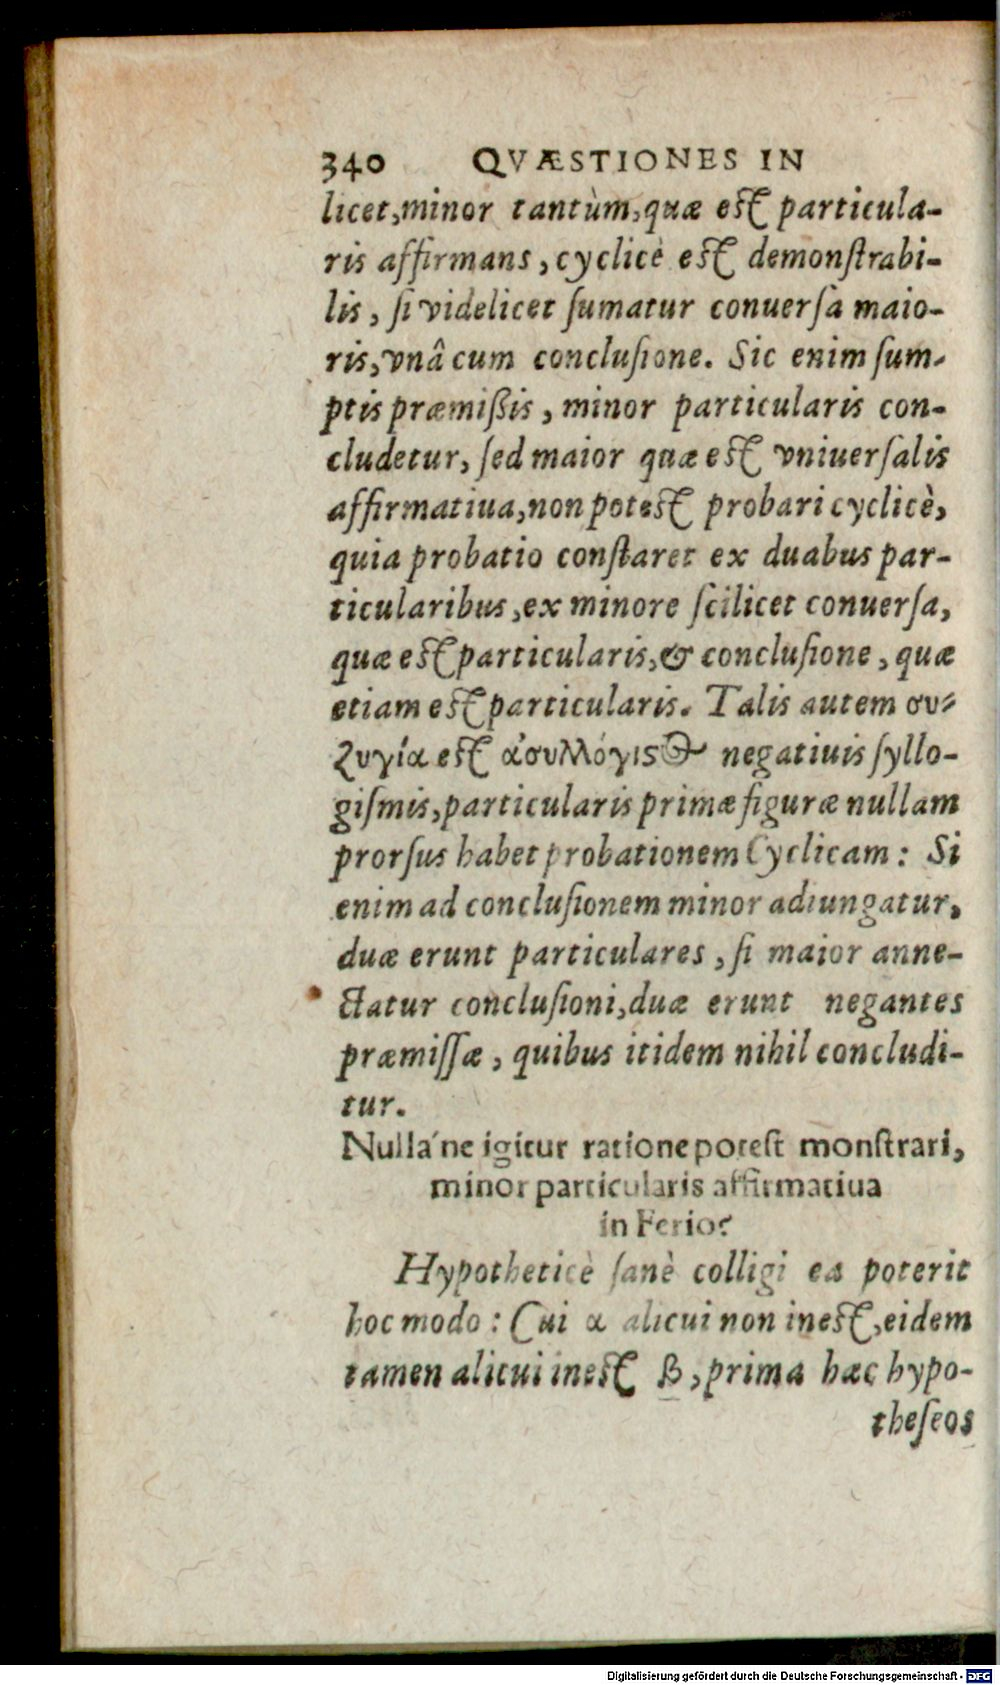 340 QVÆSTIONES IN
licet,minor tantùm,quæ est particula-
ris affirmans, cyclicè est demonſtrabi-
lis, ſi videlicet ſumatur conuerſa maio-
ris,vnâ cum concluſione. Sic enim ſum-
ptis præmißis, minor particularis con-
cludetur, ſed maior quæ est vniuerſalis
affirmatiua,non potest probari cyclicè,
quia probatio conſtaret ex duabus par-
ticularibus,ex minore ſcilicet conuerſa,
quæ est particularis,& concluſione, quæ
etiam est particularis. Talis autem συ-
ζυγία est ἀσυλλόγιςος negatiuis ſyllo-
giſmis,particularis primæ figuræ nullam
prorſus habet probationem Cyclicam: Si
enim ad concluſionem minor adiungatur,
duæ erunt particulares, ſi maior anne-
ctatur concluſioni,duæ erunt negantes
præmiſſæ, quibus itidem nihil concludi-
tur.
Nulla´ne igitur ratione potest monſtrari,
minor particularis affirmatiua
in Ferio?
Hypotheticè ſanè colligi ea poterit
hoc modo: Cui α alicui non inest,eidem
tamen alicui inest β,prima hæc hypo-
theſeos
Digitalisierung gefördert durch die Deutsche Forschungsgemeinschaft - DFG